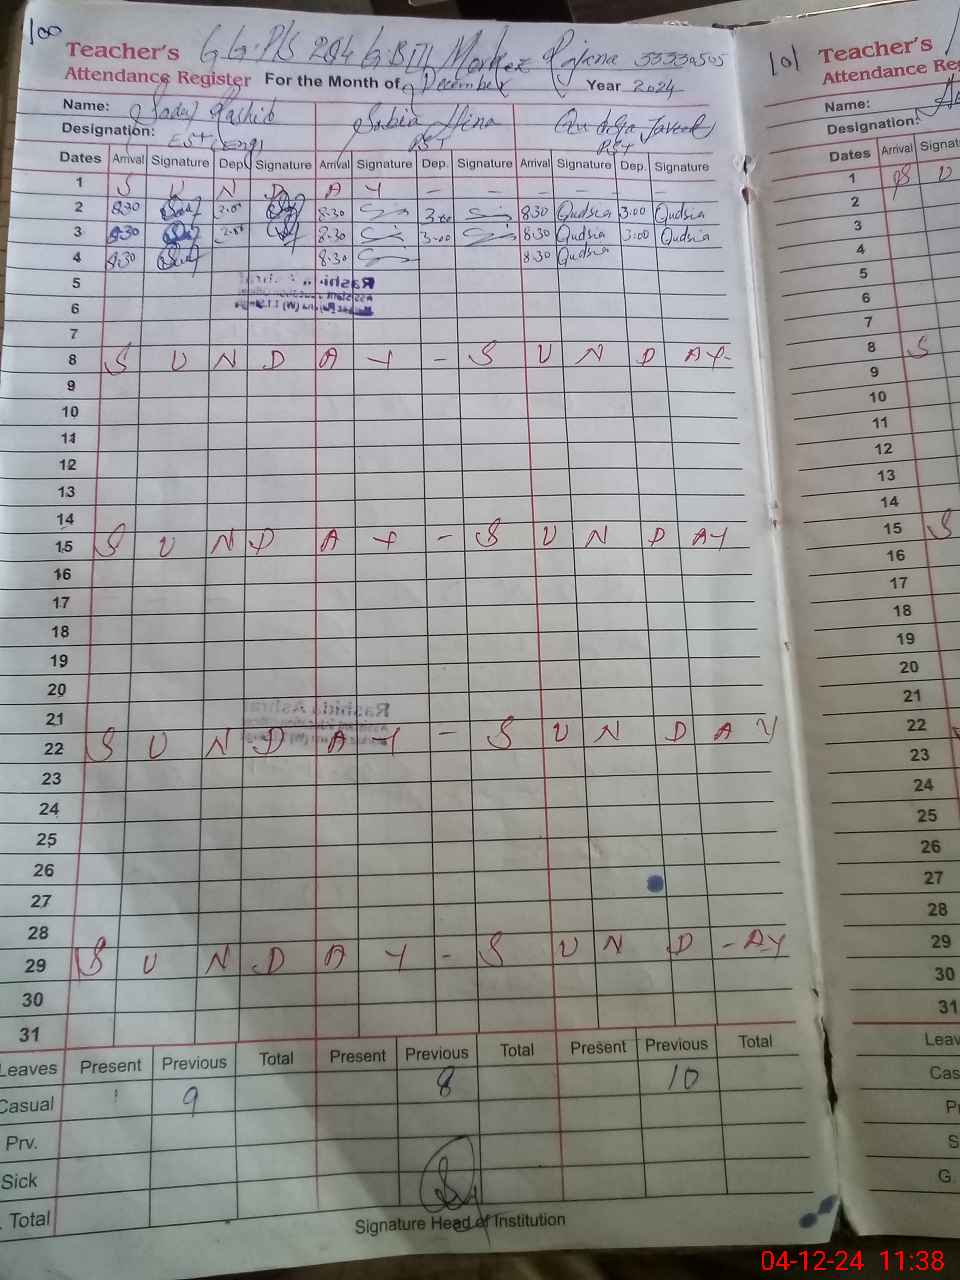 100
Teacher's G.G.P/S 204 G.B T/L Markez Pajena 33330505
Attendance Register For the Month of December Year 2024
Name: Rashid Sobia Hina Javed
Designation: EST (Eng) PST PST
Dates Arrival Signature Dep. Signature Arrival Signature Dep. Signature Arrival Signature Dep. Signature
1 S U N D A Y - - - - - -
2 8.30 3.00 8.30 3.00 8.30 Qudsia 3.00 Qudsia
3 8.30 3.00 8.30 3.00 8.30 Qudsia 3.00 Qudsia
4 8.30 8.30 8.30 Qudsia
5
6
7
8 S U N D A Y - S U N D AY-
9
10
11
12
13
14
15 S U N D A Y - S U N D AY
16
17
18
19
20
21
Rashida Ashraf
22 S U N D A Y - S U N D A Y
23
24
25
26
27
28
29 S U N D A Y - S U N D - AY
30
31
Leaves Present Previous Total Present Previous Total Present Previous Total
Casual 9 8 10
Prv.
Sick
. Total
Signature Head of Institution
101
Teacher's
Attendance Reg
Name:
Designation:
Dates Arrival Signat
1 S U
2
3
4
5
6
7
8 S
9
10
11
12
13
14
15 S
16
17
18
19
20
21
22
23
24
25
26
27
28
29
30
31
Leav
Cas
P
S
G.
04-12-24 11:38